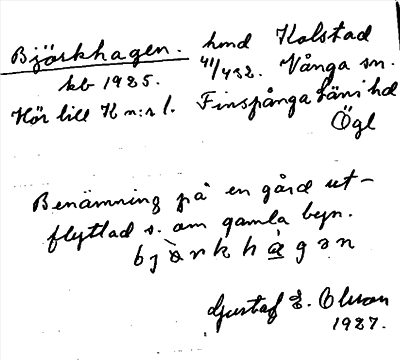 Björkhagen. hmd Kolstad
kb 1925. 41/432. Vånga sn.
Hör till K n:r 1. Finspånga läns hd
Ögl
Benämning på en gård ut-
flyttad s. om gamla byn.
bjärkhagən
Gustaf E. Olsson
1927.